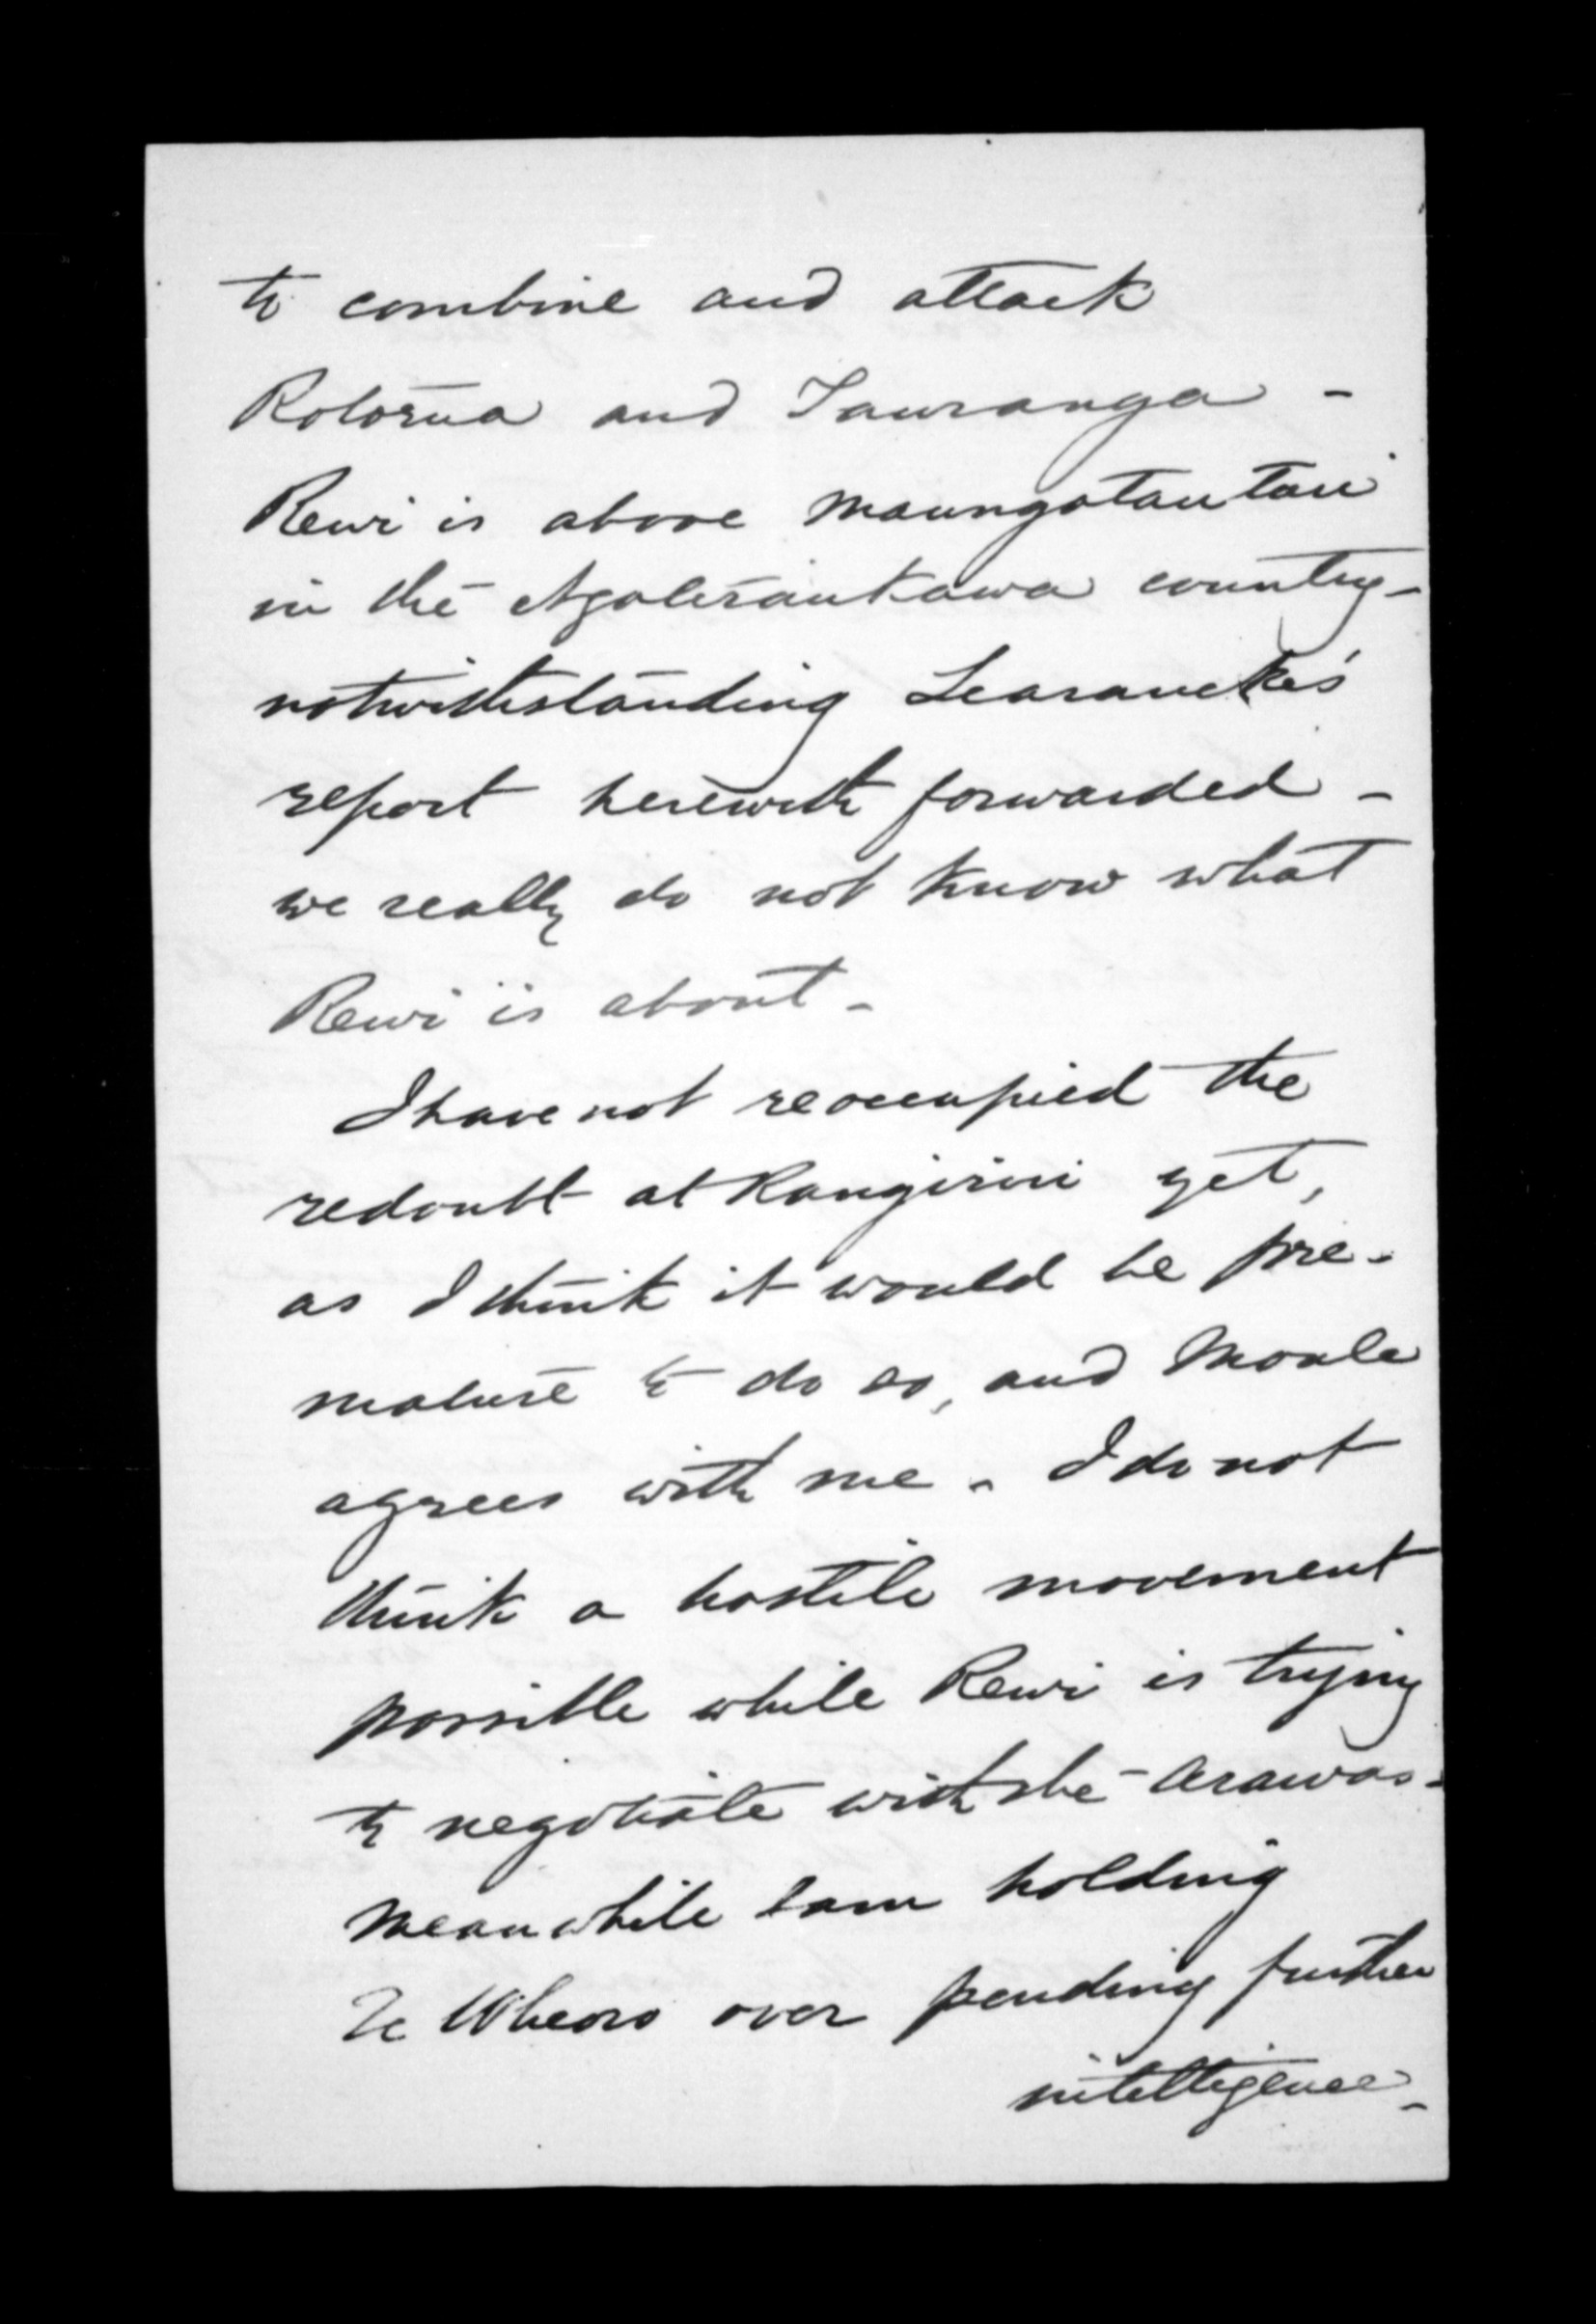 to combine and attack
Rotorua and Tauranga -
Rewi is above Maungatautari
in the Ngateraukawa country -
notwithstanding Searancke's
report herewith forwarded -
we really do not know what
Rewi is about -
I have not reoccupied the
redoubt at Rangiriri yet,
as I think it would be pre-
mature to do so, and Moule
agrees with me - I do not
think a hostile movement
possible while Rewi is trying
to negotiate with the Arawas -
Meanwhile I am holding
Te Wheoro over pending further
intelligence -